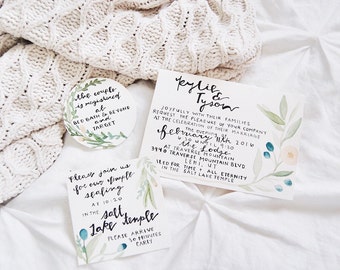 the couple
is registered
at
BED BATH & BEYOND
and
TARGET
Kylie
&
Tyson
JOYFULLY WITH THEIR FAMILIES
REQUEST THE PLEASURE OF YOUR COMPANY
AT THE CELEBRATION OF THEIR MARRIAGE
THE EVENING OF
february
2014
the Lodge
AT TRAVERSE MOUNTAIN
TRAVERSE MOUNTAIN BLVD
LEHI, UT
TIME & ALL ETERNITY
IN THE SALT LAKE TEMPLE
please join us
for our temple
sealing
AT 10:20
IN THE salt
lake temple
PLEASE ARRIVE
30 MINUTES
EARLY